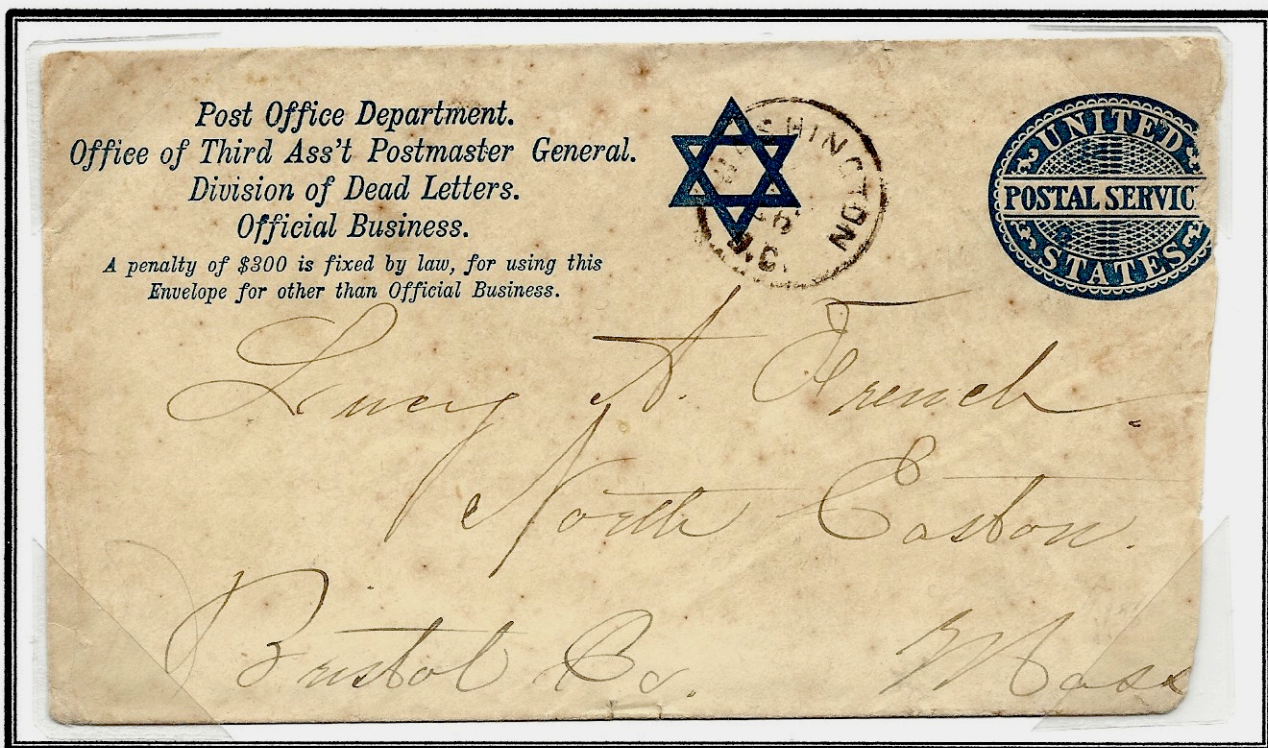 Post Office Department.
Office of Third Ass't Postmaster General.
Division of Dead Letters.
Official Business.
A penalty of $300 is fixed by law, for using this
Envelope for other than Official Business.
WASHINGTON
D.C.
UNITED
POSTAL SERVIC
STATES
Lucy A. French.
North Easton.
Bristol Co. Mass